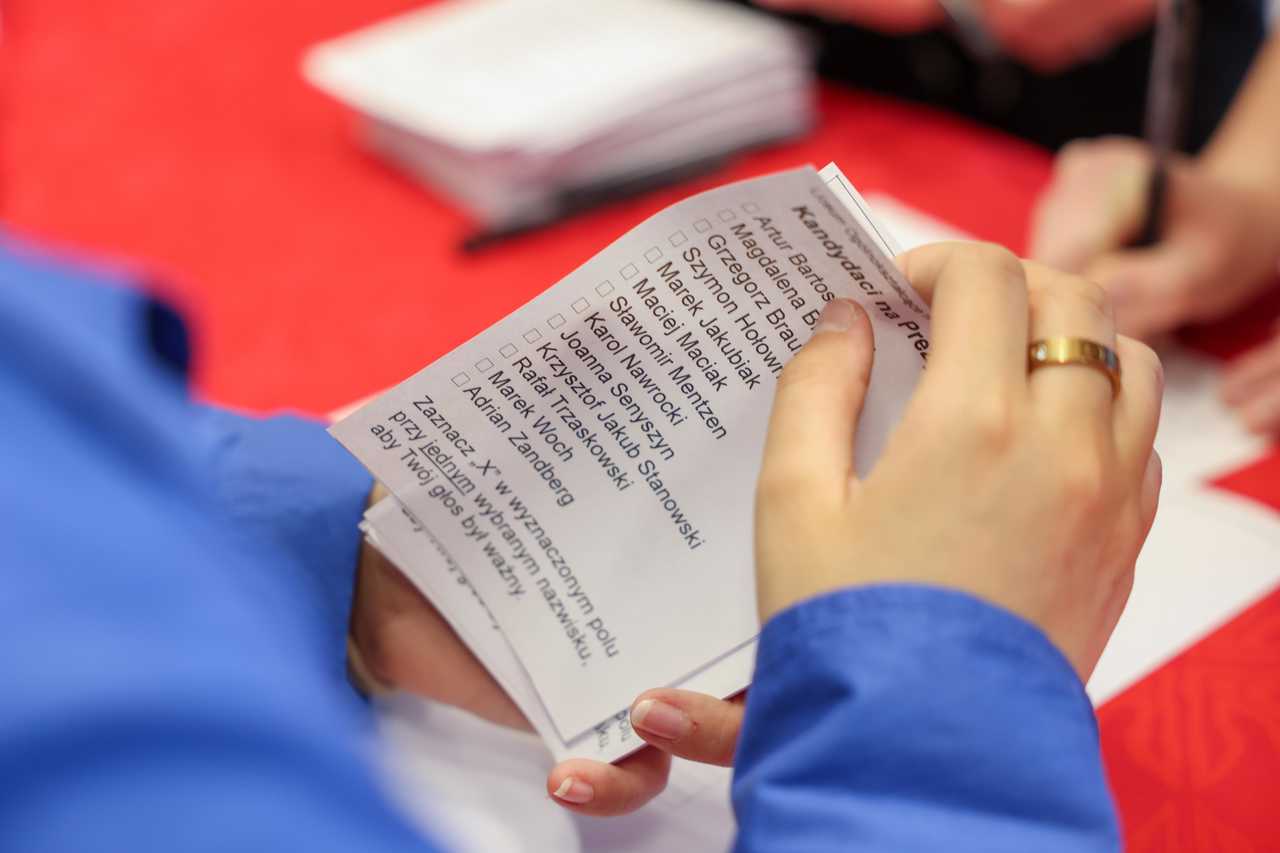 Liceum Ogólnokształcące
Kandydaci na Prez
Artur Bartos
Magdalena B
Grzegorz Brau
Szymon Hołown
Marek Jakubiak
Maciej Maciak
Sławomir Mentzen
Karol Nawrocki
Joanna Senyszyn
Krzysztof Jakub Stanowski
Rafał Trzaskowski
Marek Woch
Adrian Zandberg
Zaznacz „X” w wyznaczonym polu
przy jednym wybranym nazwisku,
aby Twój głos był ważny.